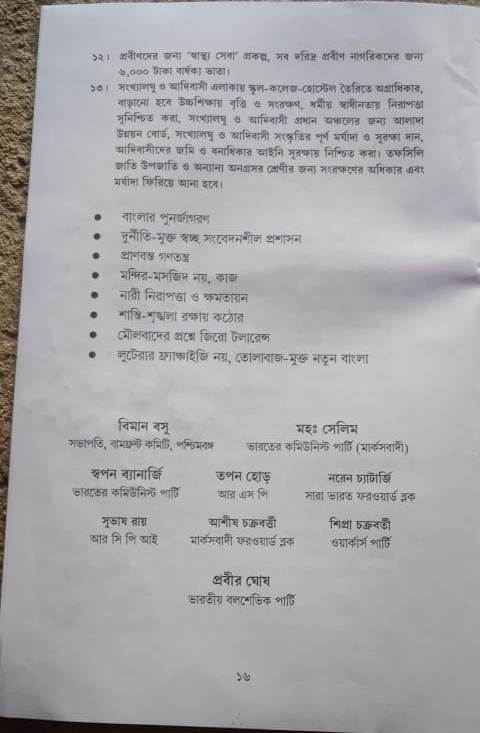 ১২। প্রবীণদের জন্য ‘স্বাস্থ্য সেবা’ প্রকল্প, সব দরিদ্র প্রবীণ নাগরিকদের জন্য
৬,০০০ টাকা বার্ধক্য ভাতা।
১৩। সংখ্যালঘু ও আদিবাসী এলাকায় স্কুল-কলেজ-হোস্টেল তৈরিতে অগ্রাধিকার,
বাড়ানো হবে উচ্চশিক্ষায় বৃত্তি ও সংরক্ষণ, ধর্মীয় স্বাধীনতায় নিরাপত্তা
সুনিশ্চিত করা, সংখ্যালঘু ও আদিবাসী প্রধান অঞ্চলের জন্য আলাদা
উন্নয়ন বোর্ড, সংখ্যালঘু ও আদিবাসী সংস্কৃতির পূর্ণ মর্যাদা ও সুরক্ষা দান,
আদিবাসীদের জমি ও বনাধিকার আইনি সুরক্ষায় নিশ্চিত করা। তফসিলি
জাতি উপজাতি ও অন্যান্য অনগ্রসর শ্রেণীর জন্য সংরক্ষণের অধিকার এবং
মর্যাদা ফিরিয়ে আনা হবে।
• বাংলার পুনর্জাগরণ
• দুর্নীতি-মুক্ত স্বচ্ছ সংবেদনশীল প্রশাসন
• প্রাণবন্ত গণতন্ত্র
• মন্দির-মসজিদ নয়, কাজ
• নারী নিরাপত্তা ও ক্ষমতায়ন
• শান্তি-শৃঙ্খলা রক্ষায় কঠোর
• মৌলবাদের প্রশ্নে জিরো টলারেন্স
• লুটেরার ফ্র্যাঞ্চাইজি নয়, তোলাবাজ-মুক্ত নতুন বাংলা
বিমান বসু মহঃ সেলিম
সভাপতি, বামফ্রন্ট কমিটি, পশ্চিমবঙ্গ ভারতের কমিউনিস্ট পার্টি (মার্কসবাদী)
স্বপন ব্যানার্জি তপন হোড় নরেন চ্যাটার্জি
ভারতের কমিউনিস্ট পার্টি আর এস পি সারা ভারত ফরওয়ার্ড ব্লক
সুভাষ রায় আশীষ চক্রবর্ত্তী শিপ্রা চক্রবর্তী
আর সি পি আই মার্কসবাদী ফরওয়ার্ড ব্লক ওয়ার্কার্স পার্টি
প্রবীর ঘোষ
ভারতীয় বলশেভিক পার্টি
১৬